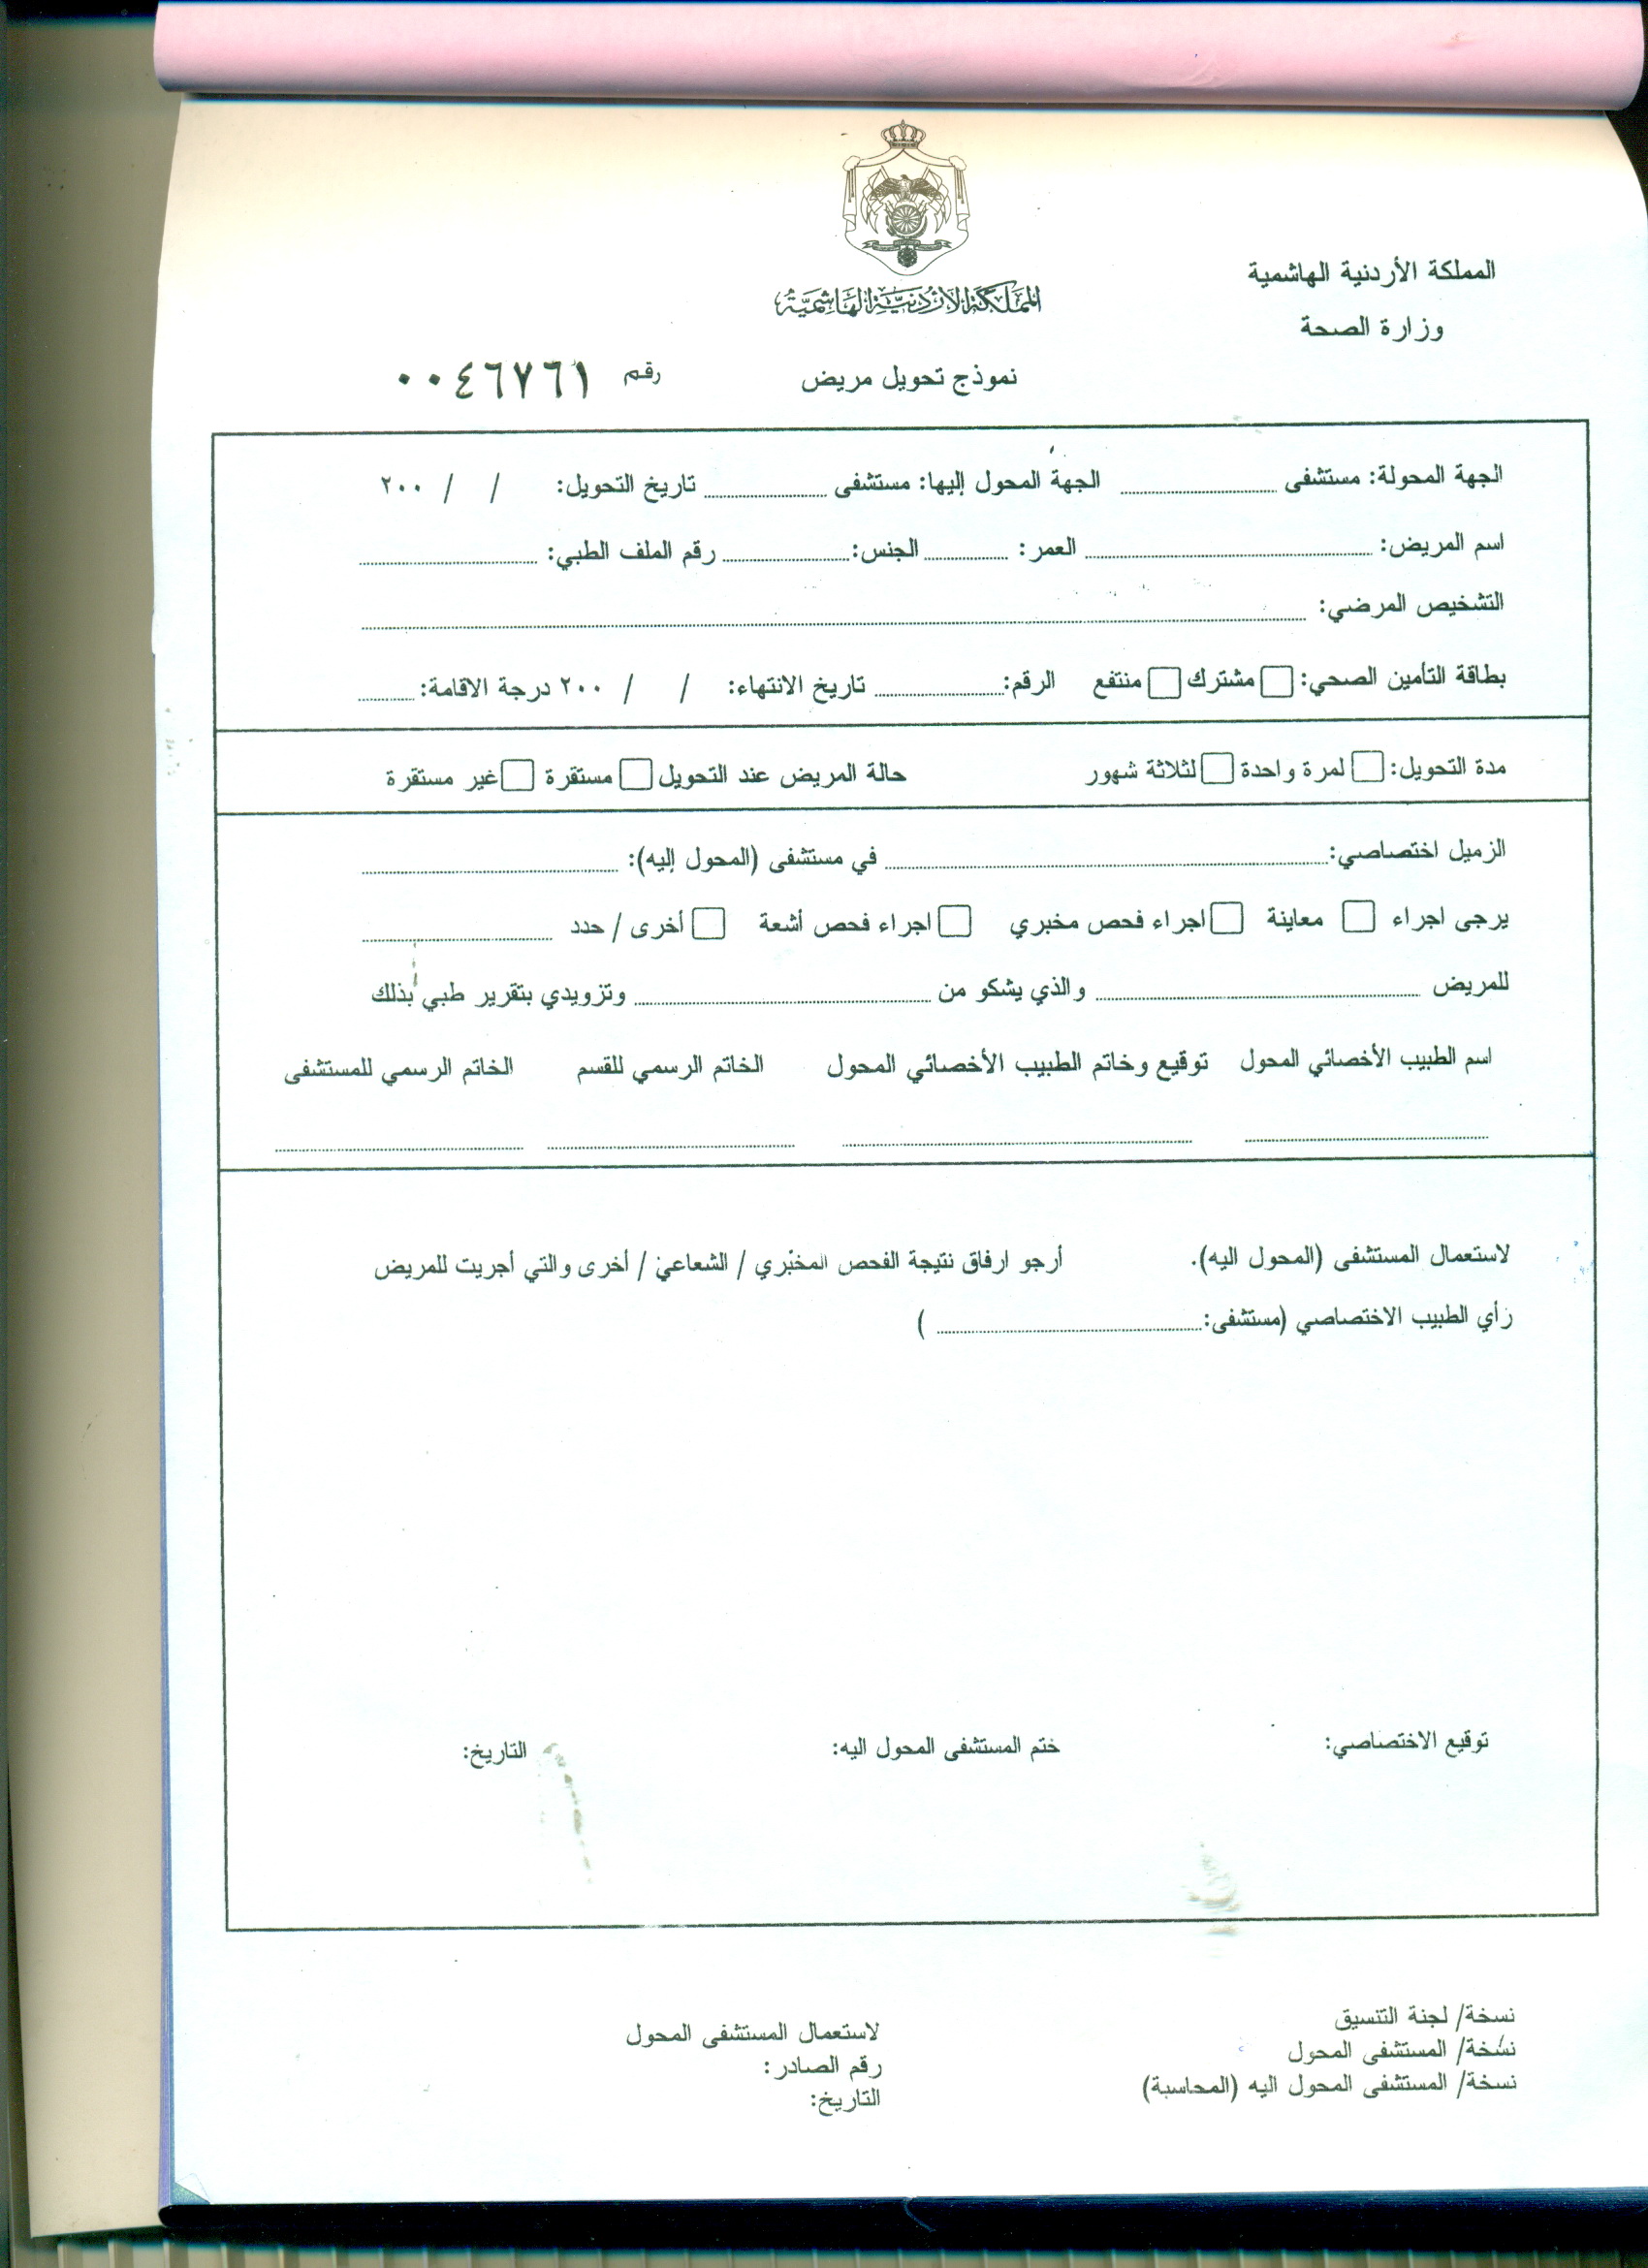 المملكة الأردنية الهاشمية
المملكة الأردنية الهاشمية
وزارة الصحة
نموذج تحويل مريض رقم ٠٠٤٦٧٦١
الجهة المحولة: مستشفى الجهة المحول إليها: مستشفى تاريخ التحويل: / / ٢٠٠
اسم المريض: العمر: الجنس: رقم الملف الطبي:
التشخيص المرضي:
بطاقة التأمين الصحي: مشترك منتفع الرقم: تاريخ الانتهاء: / / ٢٠٠ درجة الاقامة:
مدة التحويل: لمرة واحدة لثلاثة شهور حالة المريض عند التحويل مستقرة غير مستقرة
الزميل اختصاصي: في مستشفى (المحول إليه):
يرجى اجراء معاينة اجراء فحص مخبري اجراء فحص أشعة أخرى / حدد
للمريض والذي يشكو من وتزويدي بتقرير طبي بذلك
اسم الطبيب الأخصائي المحول توقيع وخاتم الطبيب الأخصائي المحول الخاتم الرسمي للقسم الخاتم الرسمي للمستشفى
لاستعمال المستشفى (المحول اليه). أرجو ارفاق نتيجة الفحص المخبري / الشعاعي / أخرى والتي أجريت للمريض
رأي الطبيب الاختصاصي (مستشفى: )
توقيع الاختصاصي: ختم المستشفى المحول اليه: التاريخ:
نسخة/ لجنة التنسيق
نسخة/ المستشفى المحول
نسخة/ المستشفى المحول اليه (المحاسبة)
لاستعمال المستشفى المحول
رقم الصادر:
التاريخ: